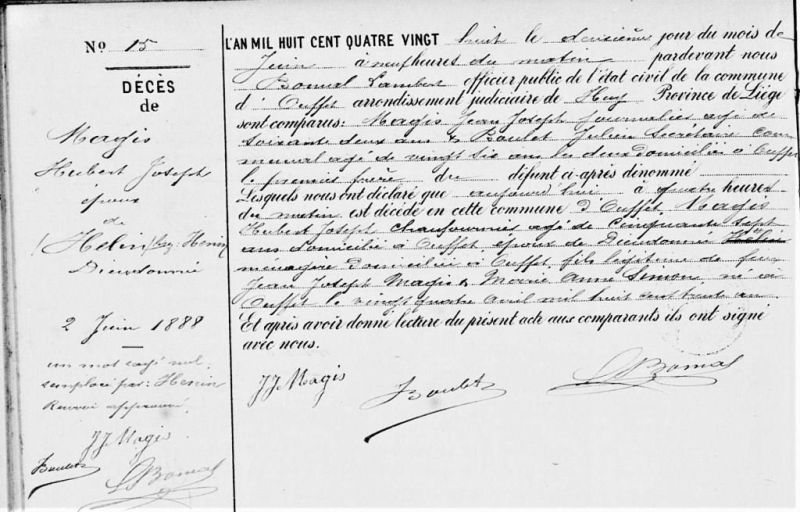 No 15
DÉCÈS
de
Magis
Hubert Joseph
époux
de
Helin Henin
Dieudonnée
2 Juin 1888
un mot rayé nul
remplacé par : Henin
Renvoi approuvé
JJ Magis
Boulet
L Bomal
L'AN MIL HUIT CENT QUATRE VINGT huit le deuxième jour du mois de
Juin à neuf heures du matin pardevant nous
Bomal Lambert officier public de l'état civil de la commune
d'Ouffet arrondissement judiciaire de Huy Province de Liège
sont comparus: Magis Jean Joseph Journalier, agé de
soixante deux ans & Boulet Julien Secrétaire com
munal agé de vingt six ans les deux domiciliés à Ouffet
le premier frère du défunt ci-après dénommé
Lesquels nous ont déclaré que aujourd'hui à quatre heures
du matin est décédé en cette commune d'Ouffet, Magis
Hubert Joseph chaufournier agé de cinquante sept
ans domicilié à Ouffet époux de Dieudonnée
ménagère domiciliée à Ouffet, fils légitime de feu
Jean Joseph Magis & Marie Anne Simon, né à
Ouffet le vingt quatre avril mil huit cent trente un.
Et après avoir donné lecture du présent acte aux comparants ils ont signé
avec nous.
JJ Magis
Boulet
L Bomal